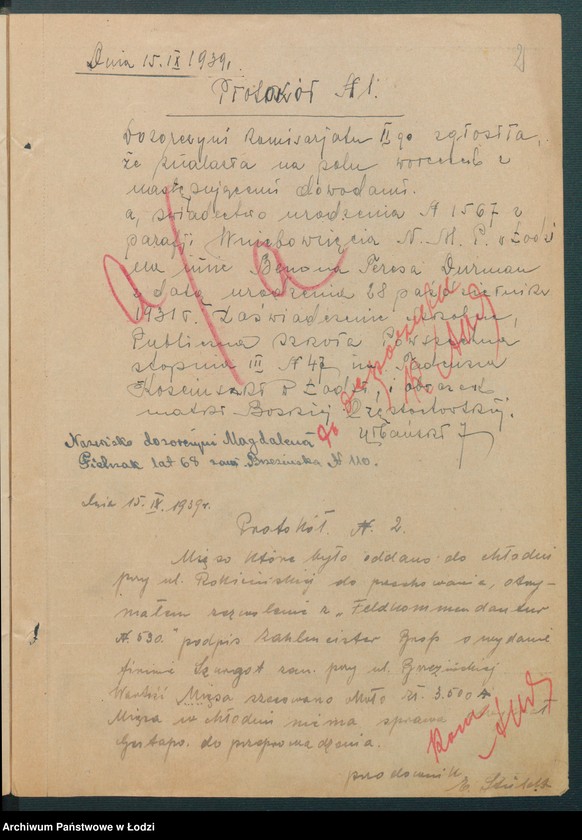 2
Dnia 15.IX 1939.
Protokół N 1.
Dozorczyni Komisarjatu II go zgłosiła,
że znalazła na polu woreczek z
następującemi dowodami.
a, świadectwo urodzenia N 1567 z
parafji Wniebowzięcia N. M. P. w Łodzi
na imie Teresa Durman
z datą urodzenia 28 październikr
1931 r. Zaświadczenie szkolne,
Publiczna Szkoła Powszechna
stopnia III N 47 im Tadeusza
Kościuszki w Łodzi, i obrazek
matki Boskiej Częstochowskiej.
a/a
Nazwisko dozorczyni Magdalena
Urbański J
Pietrzak lat 68 zam. Brzezińska N 110.
dnia 15.IX.1939r.
Protokół. N. 2.
Mięso które było oddano do chłodni
przy ul. Rokicińskiej do przechowania, otrzy-
małem zezwolenie z "Feldkommendantur
N. 530." podpis Zahlmeister o wydanie
firmie Szwrgot zam. przy ul. Brzezińskiej
Wartość Mięsa szacowano około zł. 3.500
Mięsa w chłodni niema sprawa
Gestapo. do przeprowadzenia.
przodownik
Archiwum Państwowe w Łodzi